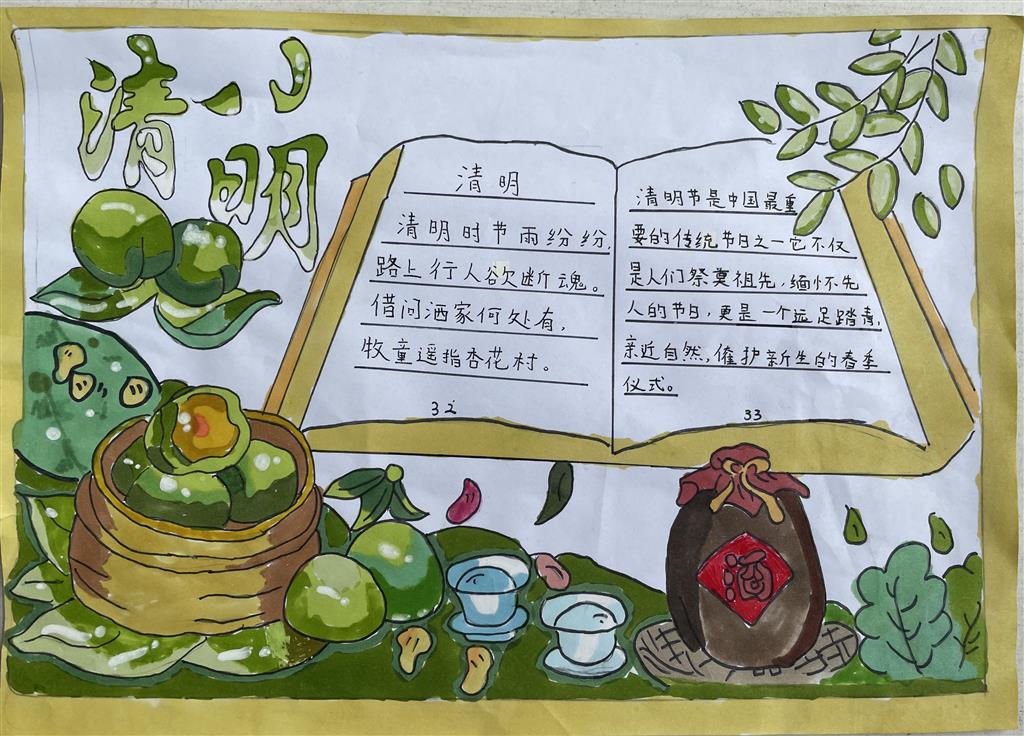 清明
清明
清明时节雨纷纷,
路上行人欲断魂。
借问酒家何处有,
牧童遥指杏花村。
32
清明节是中国最重
要的传统节日之一它不仅
是人们祭奠祖先,缅怀先
人的节日,更是一个远足踏青,
亲近自然,催护新生的春季
仪式。
33
酒